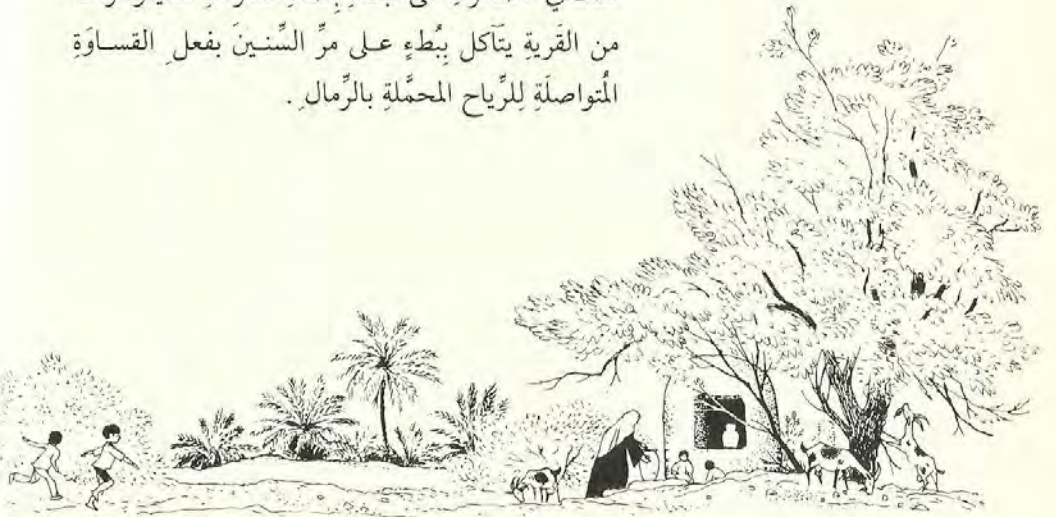 من القَريةِ يتآكل بِبُطءٍ على مرِّ السِّنينَ بفعلِ القساوَةِ
المُتواصلَةِ لِلرِّياح المحمَّلةِ بالرِّمالِ.